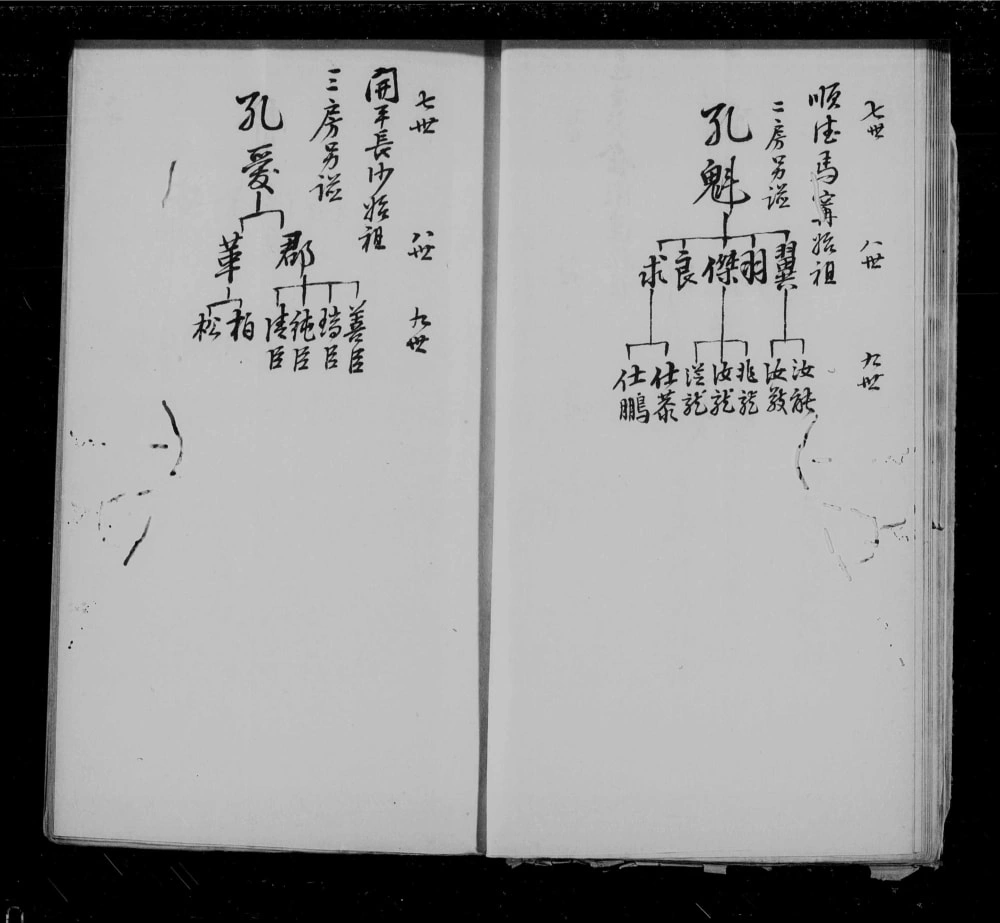 七世
八世
九世
順德馬寧始祖
二房另謚
孔魁
翼
羽
傑
良
求
汝能
汝敬
兆龍
汝龍
從龍
仕恭
仕鵬
七世
八世
九世
開平長沙始祖
三房另謚
孔爱
郡
華
善臣
臣
純臣
清臣
柏
松